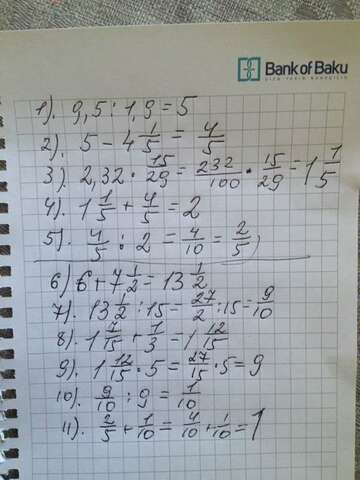 Bank of Baku
1). 9,5 : 1,9 = 5
2). 5 - 4 1/5 = 4/5
3). 2,32 · 15/29 = 232/100 · 15/29 = 1 1/5
4). 1 1/5 + 4/5 = 2
5). 4/5 : 2 = 4/10 = 2/5
6) 6 + 7 1/2 = 13 1/2
7). 13 1/2 : 15 = 27/2 : 15 = 9/10
8). 1 7/15 + 1/3 = 1 12/15
9). 1 12/15 · 5 = 27/15 · 5 = 9
10). 9/10 : 9 = 1/10
11). 2/5 + 1/10 = 4/10 + 1/10 = 1